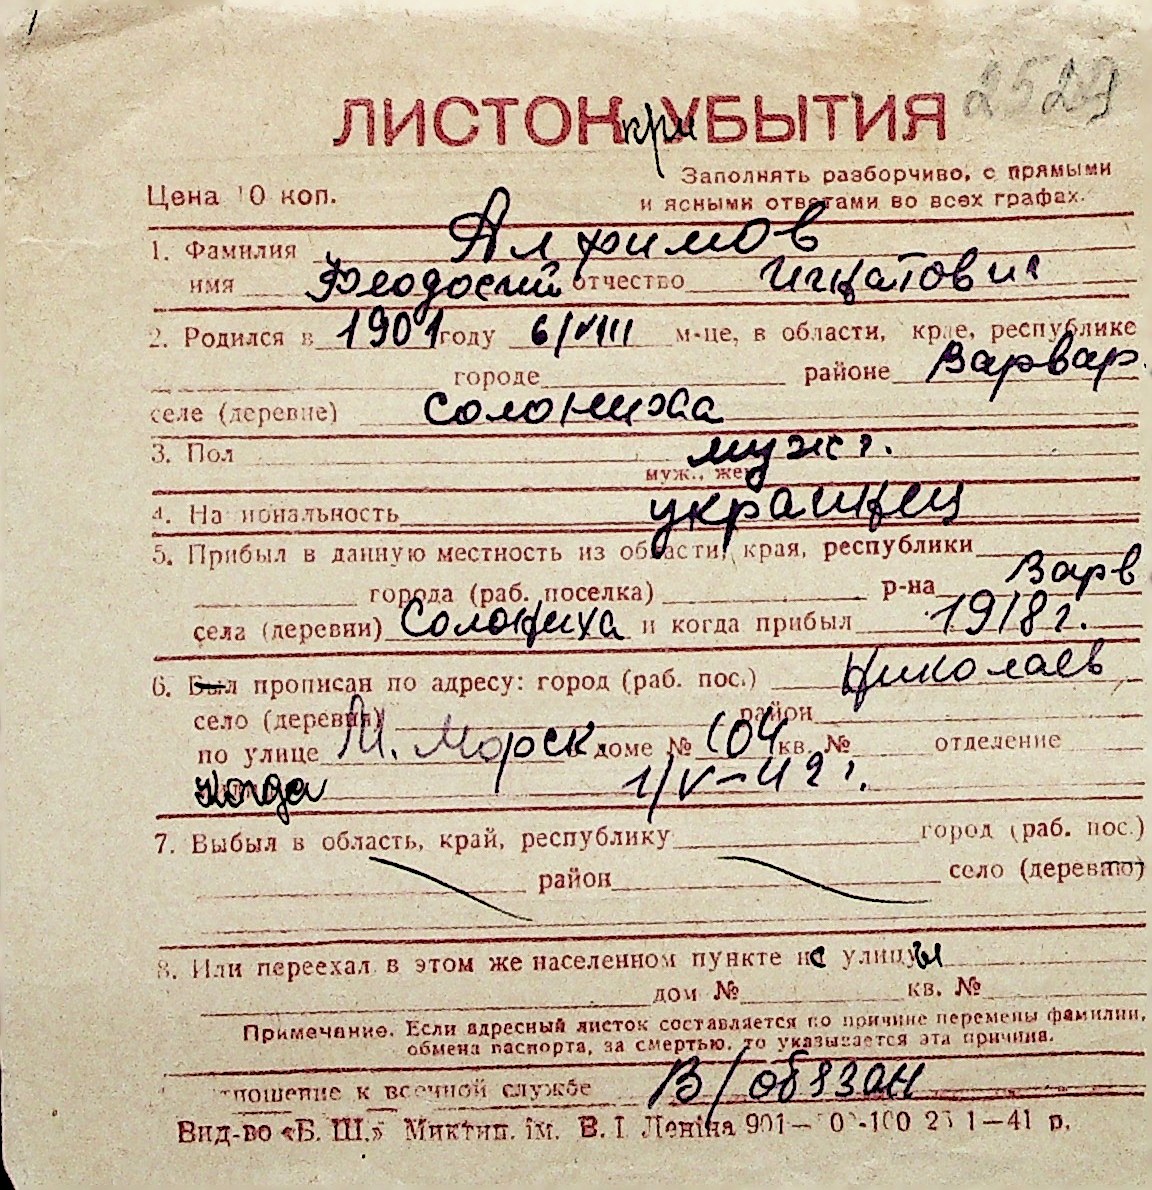 2529
ЛИСТОК при УБЫТИЯ
Заполнять разборчиво, с прямыми
Цена 10 коп. и ясными ответами во всех графах.
1. Фамилия Алфимов
имя Феодосий отчество Игнатович
2. Родился в 1901 году 6/VIII м-це, в области, крае, республике
городе районе Варвар.
селе (деревне) Солониха
3. Пол мужс.
муж., жен
4. Национальность украинец
5. Прибыл в данную местность из области, края, республики
города (раб. поселка) р-на Варв
села (деревни) Солониха и когда прибыл 1918 г.
6. Был прописан по адресу: город (раб. пос.) Николаев
село (деревня) район
по улице М. Морск доме № 104 кв. № отделение
Когда 1/V-42 г.
7. Выбыл в область, край, республику город (раб. пос.)
район село (деревню)
8. Или переехал в этом же населенном пункте с улицы
дом № кв. №
Примечание. Если адресный листок составляется по причине перемены фамилии,
обмена паспорта, за смертью, то указывается эта причина.
отношение к военной службе В/обязан
Вид-во «Б. Ш.» Миктип. ім. В. І Леніна 901—